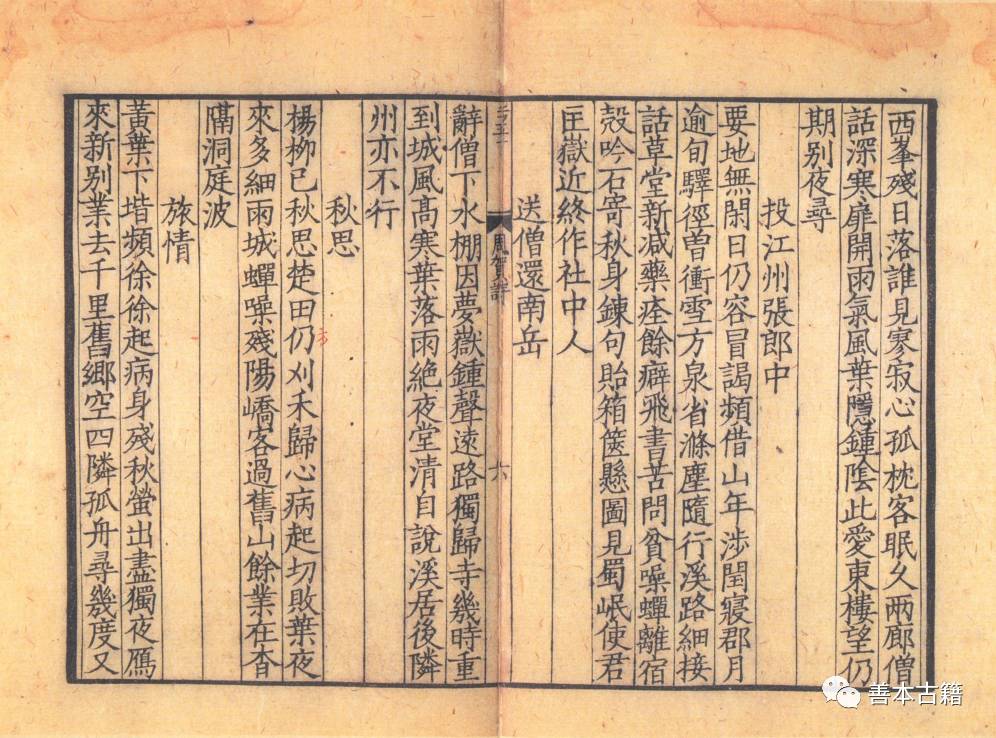 西峯殘日落誰見寥寂心孤枕客眠久兩廊僧
話深寒扉開雨氣風葉隱鍾陰此愛東樓望仍
期别夜尋
投江州張郎中
要地無閑日仍容冒謁頻借山年涉閏寢郡月
逾旬驛徑曽衝雪方泉省滌塵隨行溪路細接
話草堂新減藥痊餘癖飛書苦問貧噪蟬離宿
殼吟石寄秋身鍊句貽箱篋懸圖見蜀岷使君
匡嶽近終作社中人
送僧還南岳
周賀詩
六
辭僧下水棚因夢嶽鍾聲遠路獨歸寺幾時重
到城風髙寒葉落雨絶夜堂清自說溪居後隣
州亦不行
秋思
楊柳已秋思楚田仍刈禾歸心病起切敗葉夜
來多細雨城蟬噪殘陽嶠客過舊山餘業在杳
隔洞庭波
旅情
黃葉下堦頻徐徐起病身殘秋螢出盡獨夜鴈
來新别業去千里舊鄉空四隣孤舟尋幾度又
善本古籍